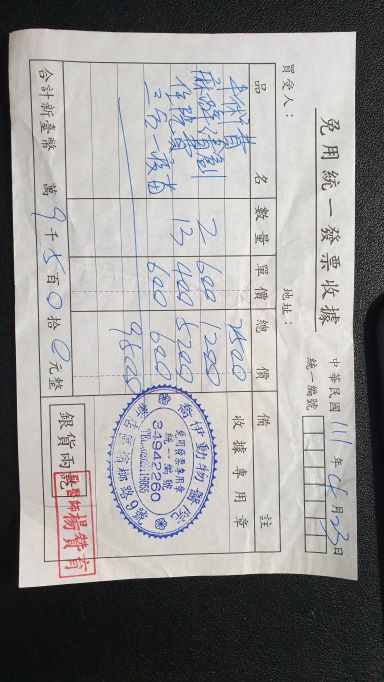 免用統一發票收據
中華民國 111年4月23日
買受人：
地址：
統一編號
品名 數量 單價 總價 備註
手術費 2500
麻醉清創 2 600 1200
住院費 13 400 5200
三合一疫苗 600 600
9500
收據專用章
動物醫院
免用發票專用章
統一編號
34842780
合計新臺幣 萬9千5百0拾0元整
銀貨兩訖
獸醫師